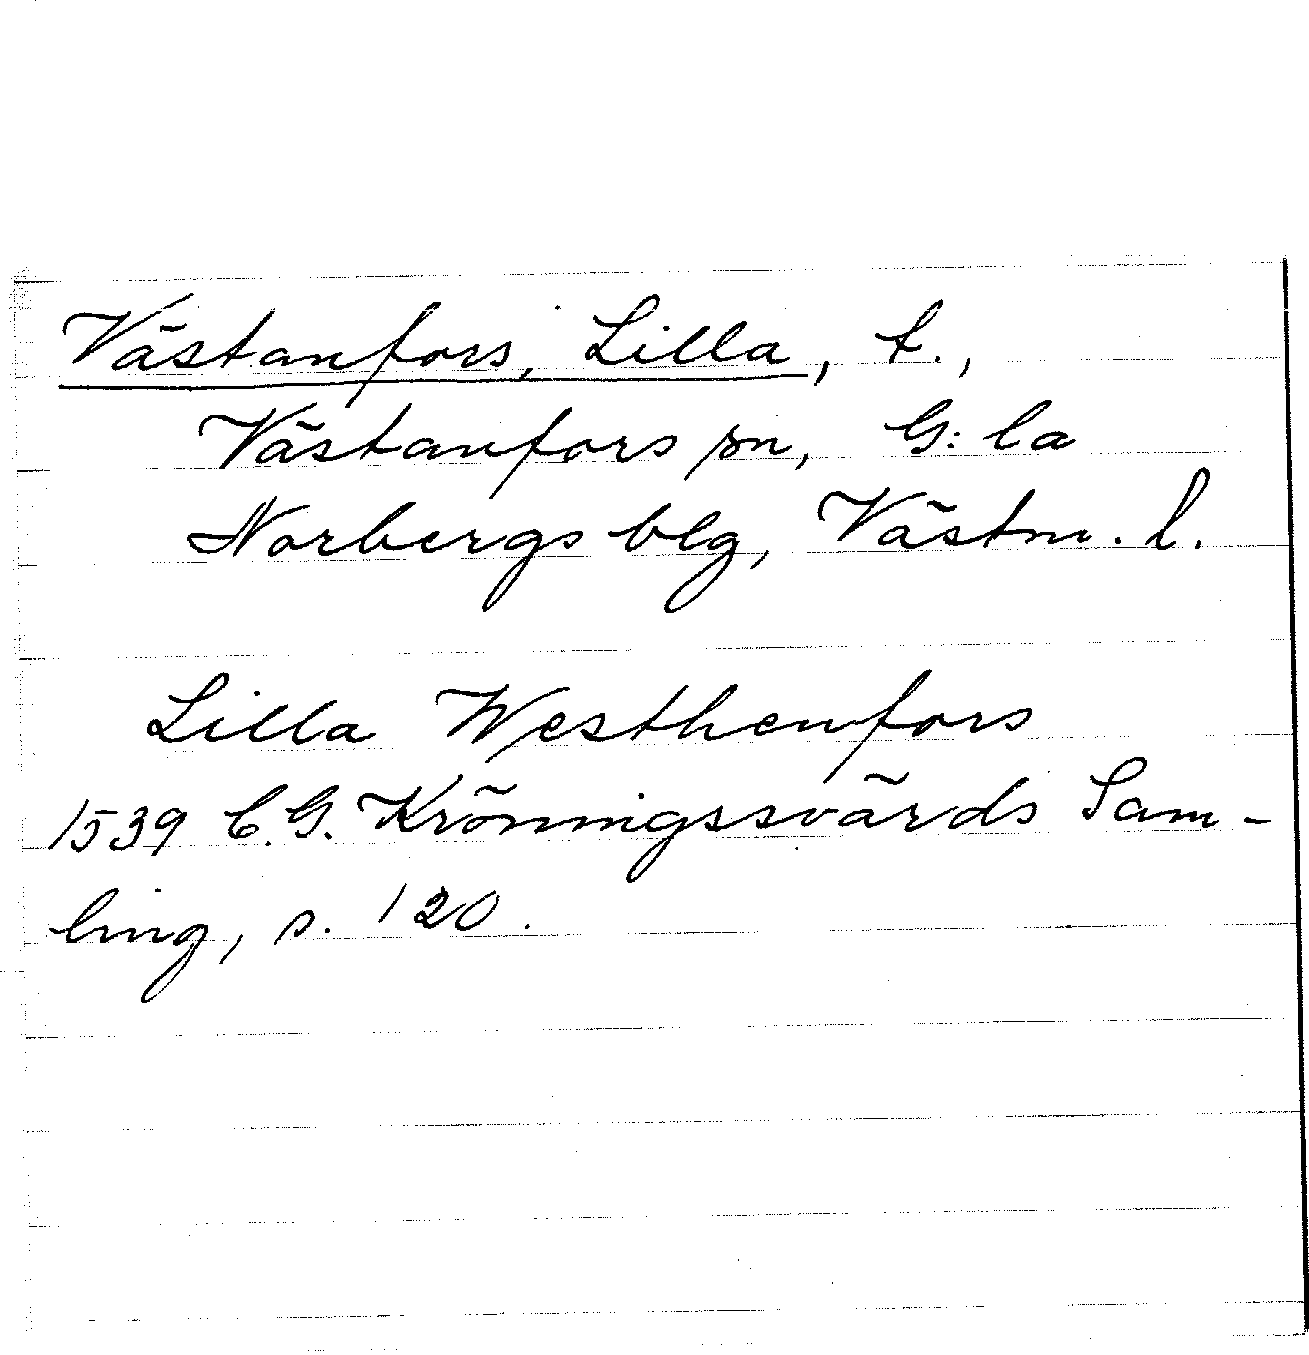 Västanfors, Lilla, t.,
Västanfors sn, G:la
Norbergs blg, Västm. l.
Lilla Westhenfors
1539 C.G. Kröningssvärds Sam-
ling, s. 120.